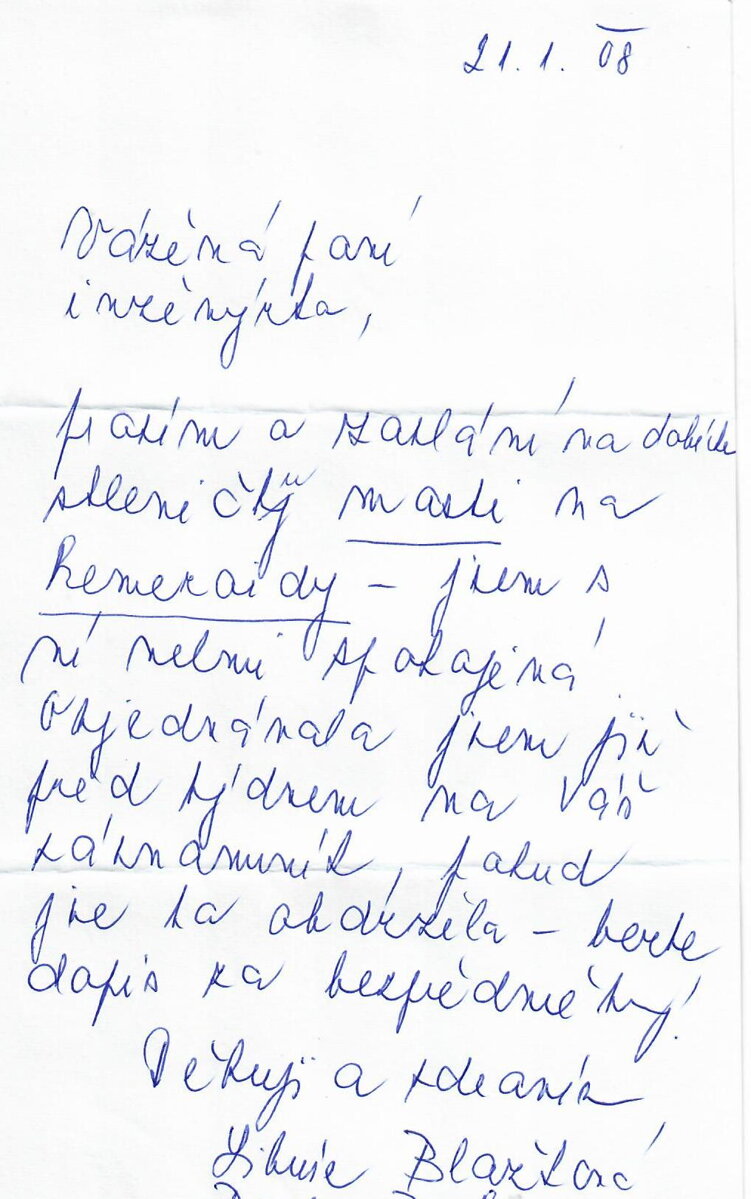 21. 1. 08
Vážená paní
inženýrko,
prosím o zaslání na dobírku
skleničky masti na
hemeroidy – jsem s
ní velmi spokojená.
Objednávala jsem již
před týdnem na Váš
záznamník, pokud
jste to obdržela – berte
dopis za bezpředmětný.
Děkuji a zdravím
Libuše Blažková